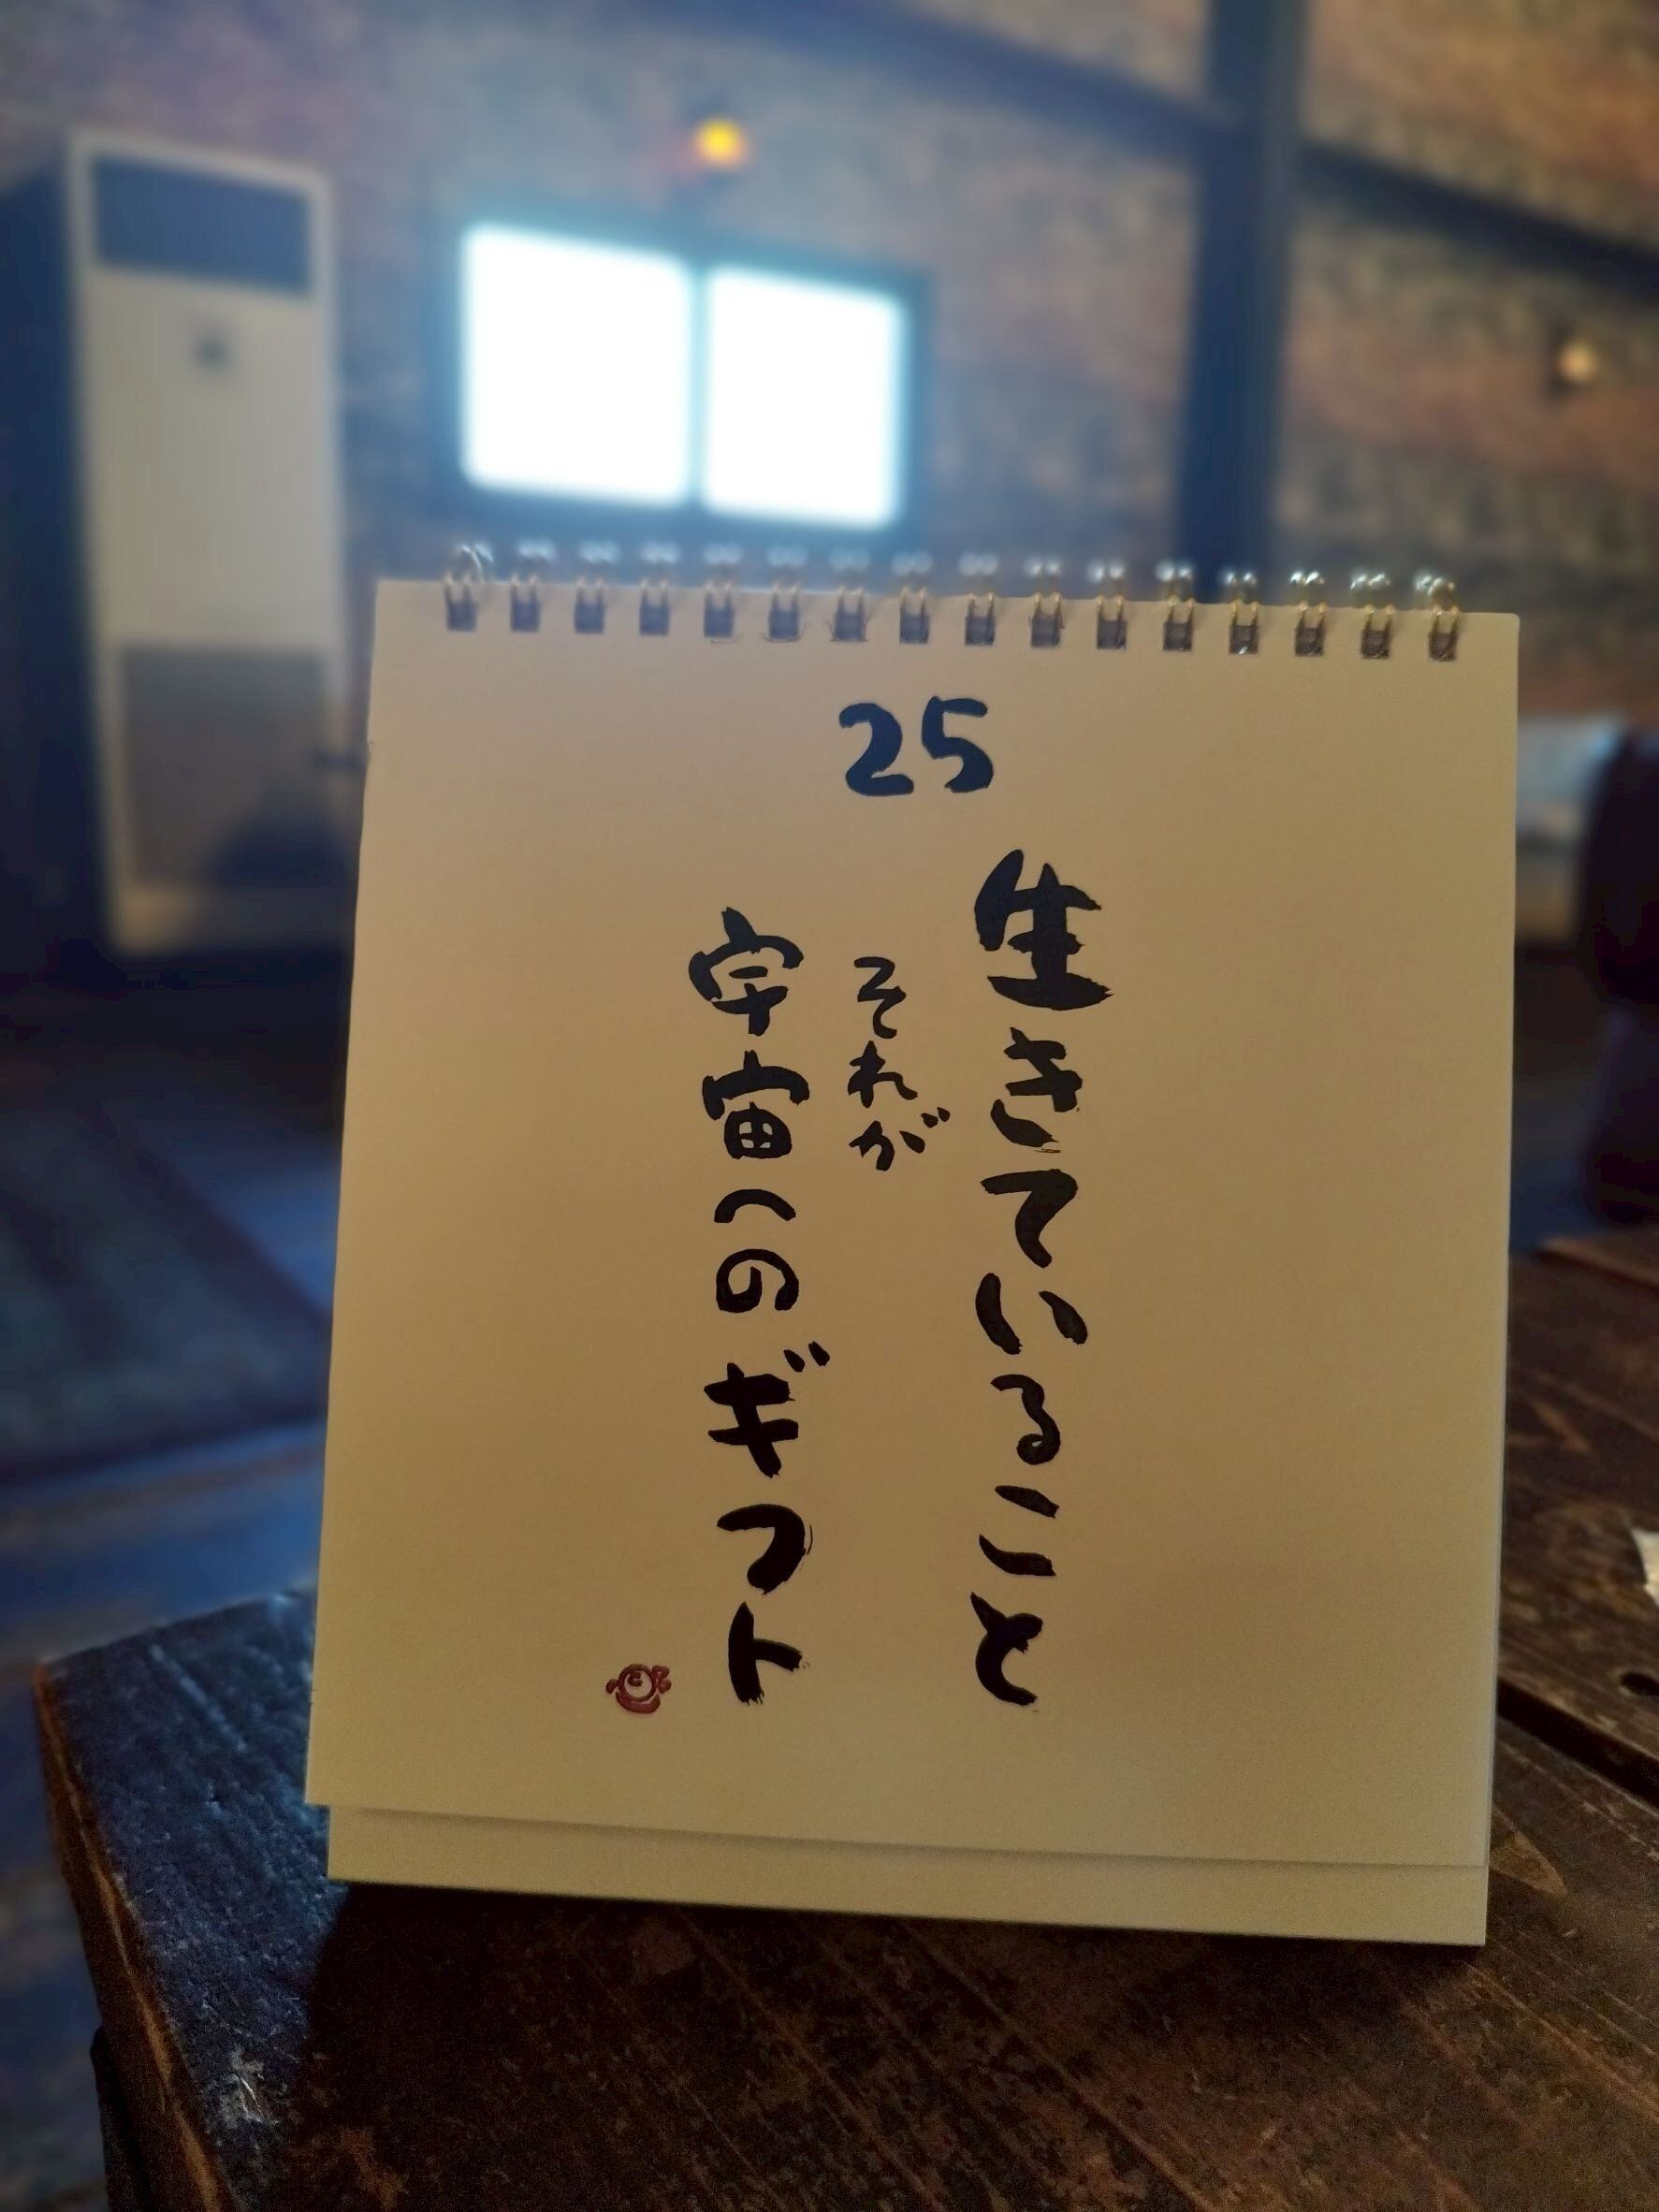 25
生きていること
それが
宇宙へのギフト